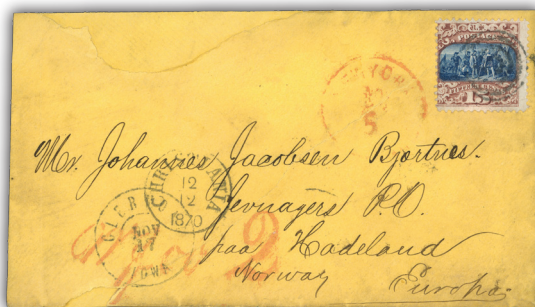 U.S.
POSTAGE
15
NEW YORK
5
Mr. Johannes Jacobsen Bjørtnes.
Jevnagers P.O.
paa Hadeland
Norway Europa.
CHRISTIANIA
12
12
1870
NOV
17
IOWA
2